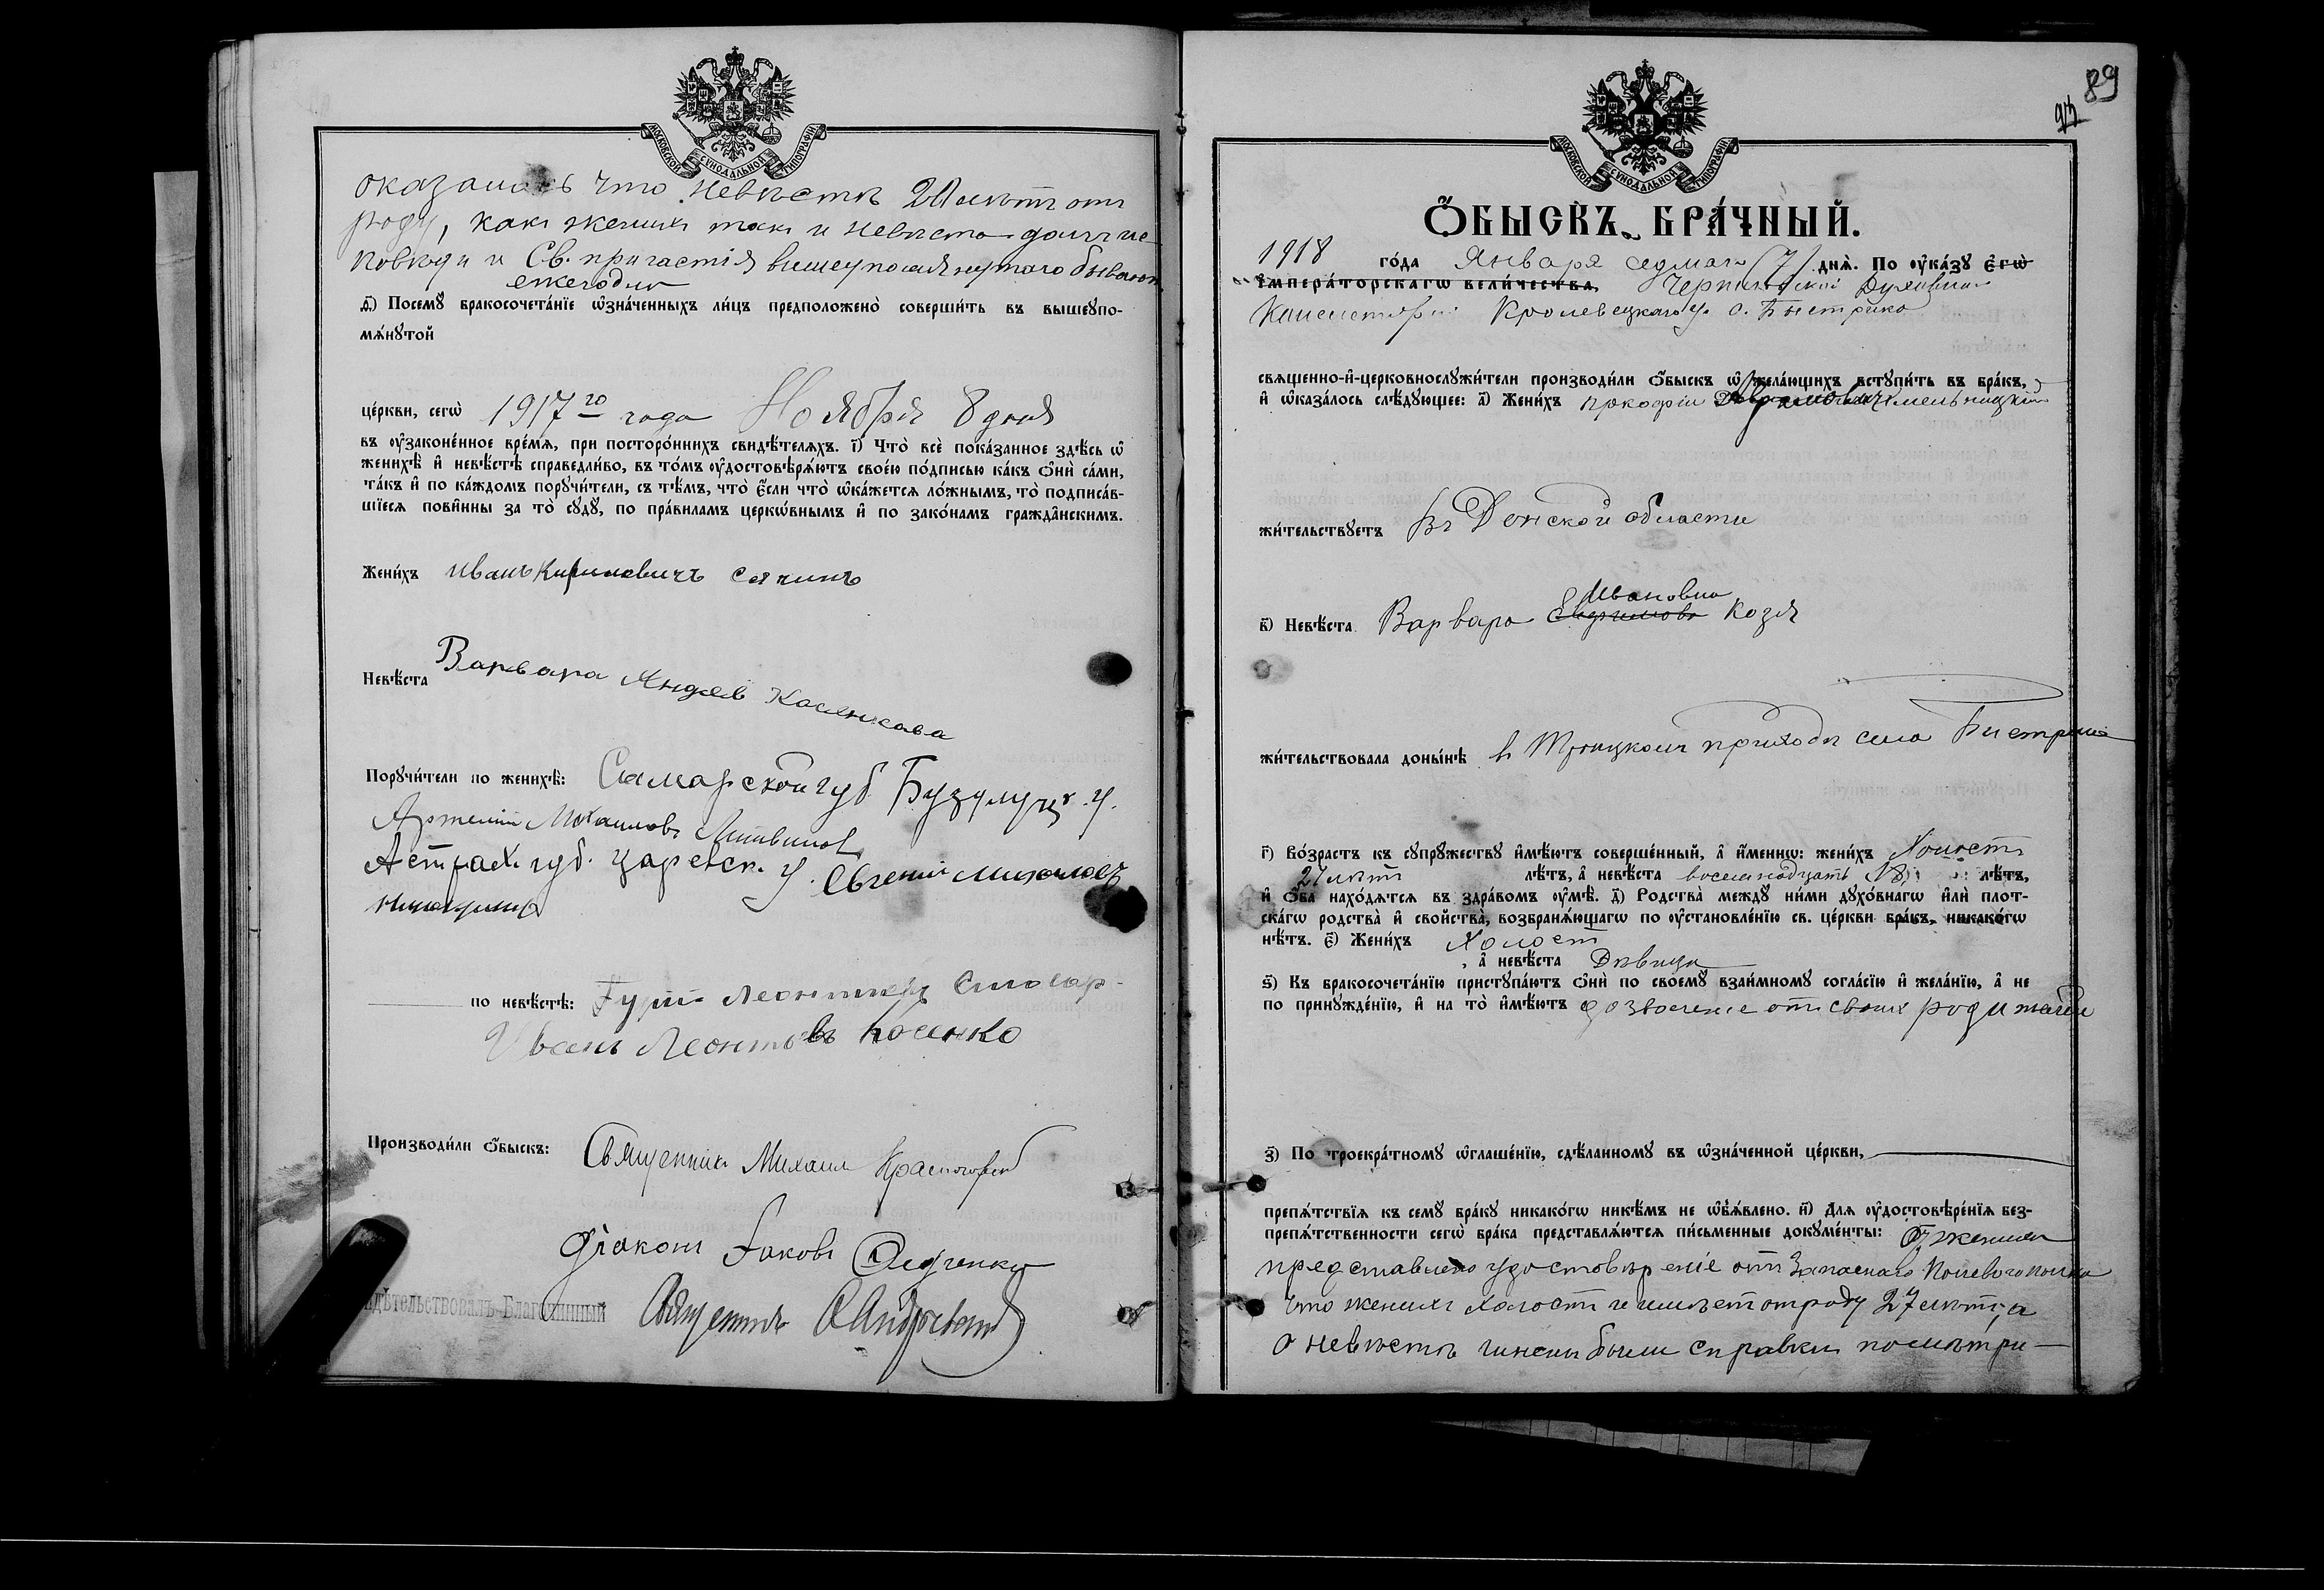 МОСКОВСКОЙ СѴНОДАЛЬНОЙ ТИПОГРАФІИ
оказалось что невѣстѣ 20 лѣтъ отъ
роду, какъ женихъ такъ и невѣста
и Св. причастія вышеупомянутаго бываютъ
ежегодно
д҃) Посемꙋ бракосочета́нїе ѡ҆зна́ченныхъ ли́цъ предположено̀ соверши́ть въ вышеꙋпо-
мѧ́нꙋтой
це́ркви, сегѡ̀ 1917 го года Ноября 8 дня
въ ᲂу҆законе́нное вре́мѧ, при посторо́ннихъ свидѣ́телѧхъ. і҃) Что̀ всѐ пока́занное здѣ́сь ѡ҆
женихѣ̀ и҆ невѣ́стѣ справедли́во, въ то́мъ ᲂу҆достовѣрѧ́ютъ свое́ю по́дписью ка́къ ѻ҆нѝ са́ми,
та́къ и҆ по ка́ждомъ порꙋчи́тели, съ тѣ́мъ, что̀ є҆́сли что̀ ѡ҆ка́жетсѧ ло́жнымъ, то̀ подписа́в-
шїесѧ пови́нны за то̀ сꙋдꙋ̀, по пра́виламъ церкѡ́внымъ и҆ по зако́намъ гражда́нскимъ.
Жени́хъ иванъ Кириловичъ сячинъ
Невѣ́ста Варвара Андяев Касянкова
Порꙋчи́тели по женихѣ̀: Самарской губ Бузулуцк. у.
Артемій Михаиловъ Литвинов
Астрах. губ. царевск. у. Евгеній михаиловъ
по невѣ́стѣ: Гурій Леонтиев
Ивань Леонтовъ Косенко
Производи́ли ѻ҆́быскъ: Священникъ Михаилъ
Діаконъ Іаковъ
Свидѣтельствовалъ Благочинный Священникъ
89
МОСКОВСКОЙ СѴНОДАЛЬНОЙ ТИПОГРАФІИ
Ѻ҆БЫСКЪ БРА́ЧНЫЙ.
1918 го́да Января седмаго (7) днѧ̀. По ᲂу҆ка́зꙋ є҆гѡ̀
и҆мпера́торскагѡ вели́чества, Черниговской Духовной
Консисторіи Кролевецкаго у. с. Быстрика
свѧщенно-и҆-церковнослꙋжи́тели производи́ли ѻ҆́быскъ ѡ҆ жела́ющихъ встꙋпи́ть въ бра́къ,
и҆ ѡ҆каза́лось слѣ́дꙋющее: а҃) Жени́хъ Прокофій
жи́тельствꙋетъ въ Донской области
Ивановна
в҃) Невѣ́ста Варвара Козля
жи́тельствовала доны́нѣ в Троицкомъ приходѣ села Быстрика
г҃) Во́зрастъ къ сꙋпрꙋ́жествꙋ и҆мѣ́ютъ соверше́нный, а҆ и҆́меннѡ: жени́хъ Холостъ
27 лѣтъ лѣ́тъ, а҆ невѣ́ста восемнадцать 18 лѣ́тъ,
и҆ ѻ҆́ба нахо́дѧтсѧ въ здра́вомъ ᲂу҆мѣ̀. д҃) Родства̀ междꙋ ни́ми дꙋхо́внагѡ и҆лѝ плот-
ска́гѡ родства̀ и҆ свойства̀, возбранѧ́ющагѡ по ᲂу҆становле́нїю св. це́ркви бра́къ, никако́гѡ
нѣ́тъ. є҃) Жени́хъ Холостъ
, а҆ невѣ́ста Дѣвица
ѕ҃) Къ бракосочета́нїю пристꙋпа́ютъ ѻ҆нѝ по своемꙋ̀ взаи́мномꙋ согла́сїю и҆ жела́нїю, а҆ не
по принꙋжде́нїю, и҆ на то̀ и҆мѣ́ютъ дозволеніе отъ своихъ родителей
з҃) По троекра́тномꙋ ѡ҆глаше́нїю, сдѣ́ланномꙋ въ ѡ҆зна́ченной це́ркви,
препѧ́тствїѧ къ семꙋ̀ бра́кꙋ никако́гѡ никѣ́мъ не ѡ҆б̾ѧ́влено. и҃) Длѧ ᲂу҆достовѣре́нїѧ без-
препѧ́тственности сегѡ̀ бра́ка представлѧ́ютсѧ пи́сьменные докꙋме́нты:
представлено удостовѣреніе отъ Запаснаго полка
что женихъ холостъ и имѣетъ отроду 27 лѣтъ, а
о невѣстѣ чинены были справки по метри-